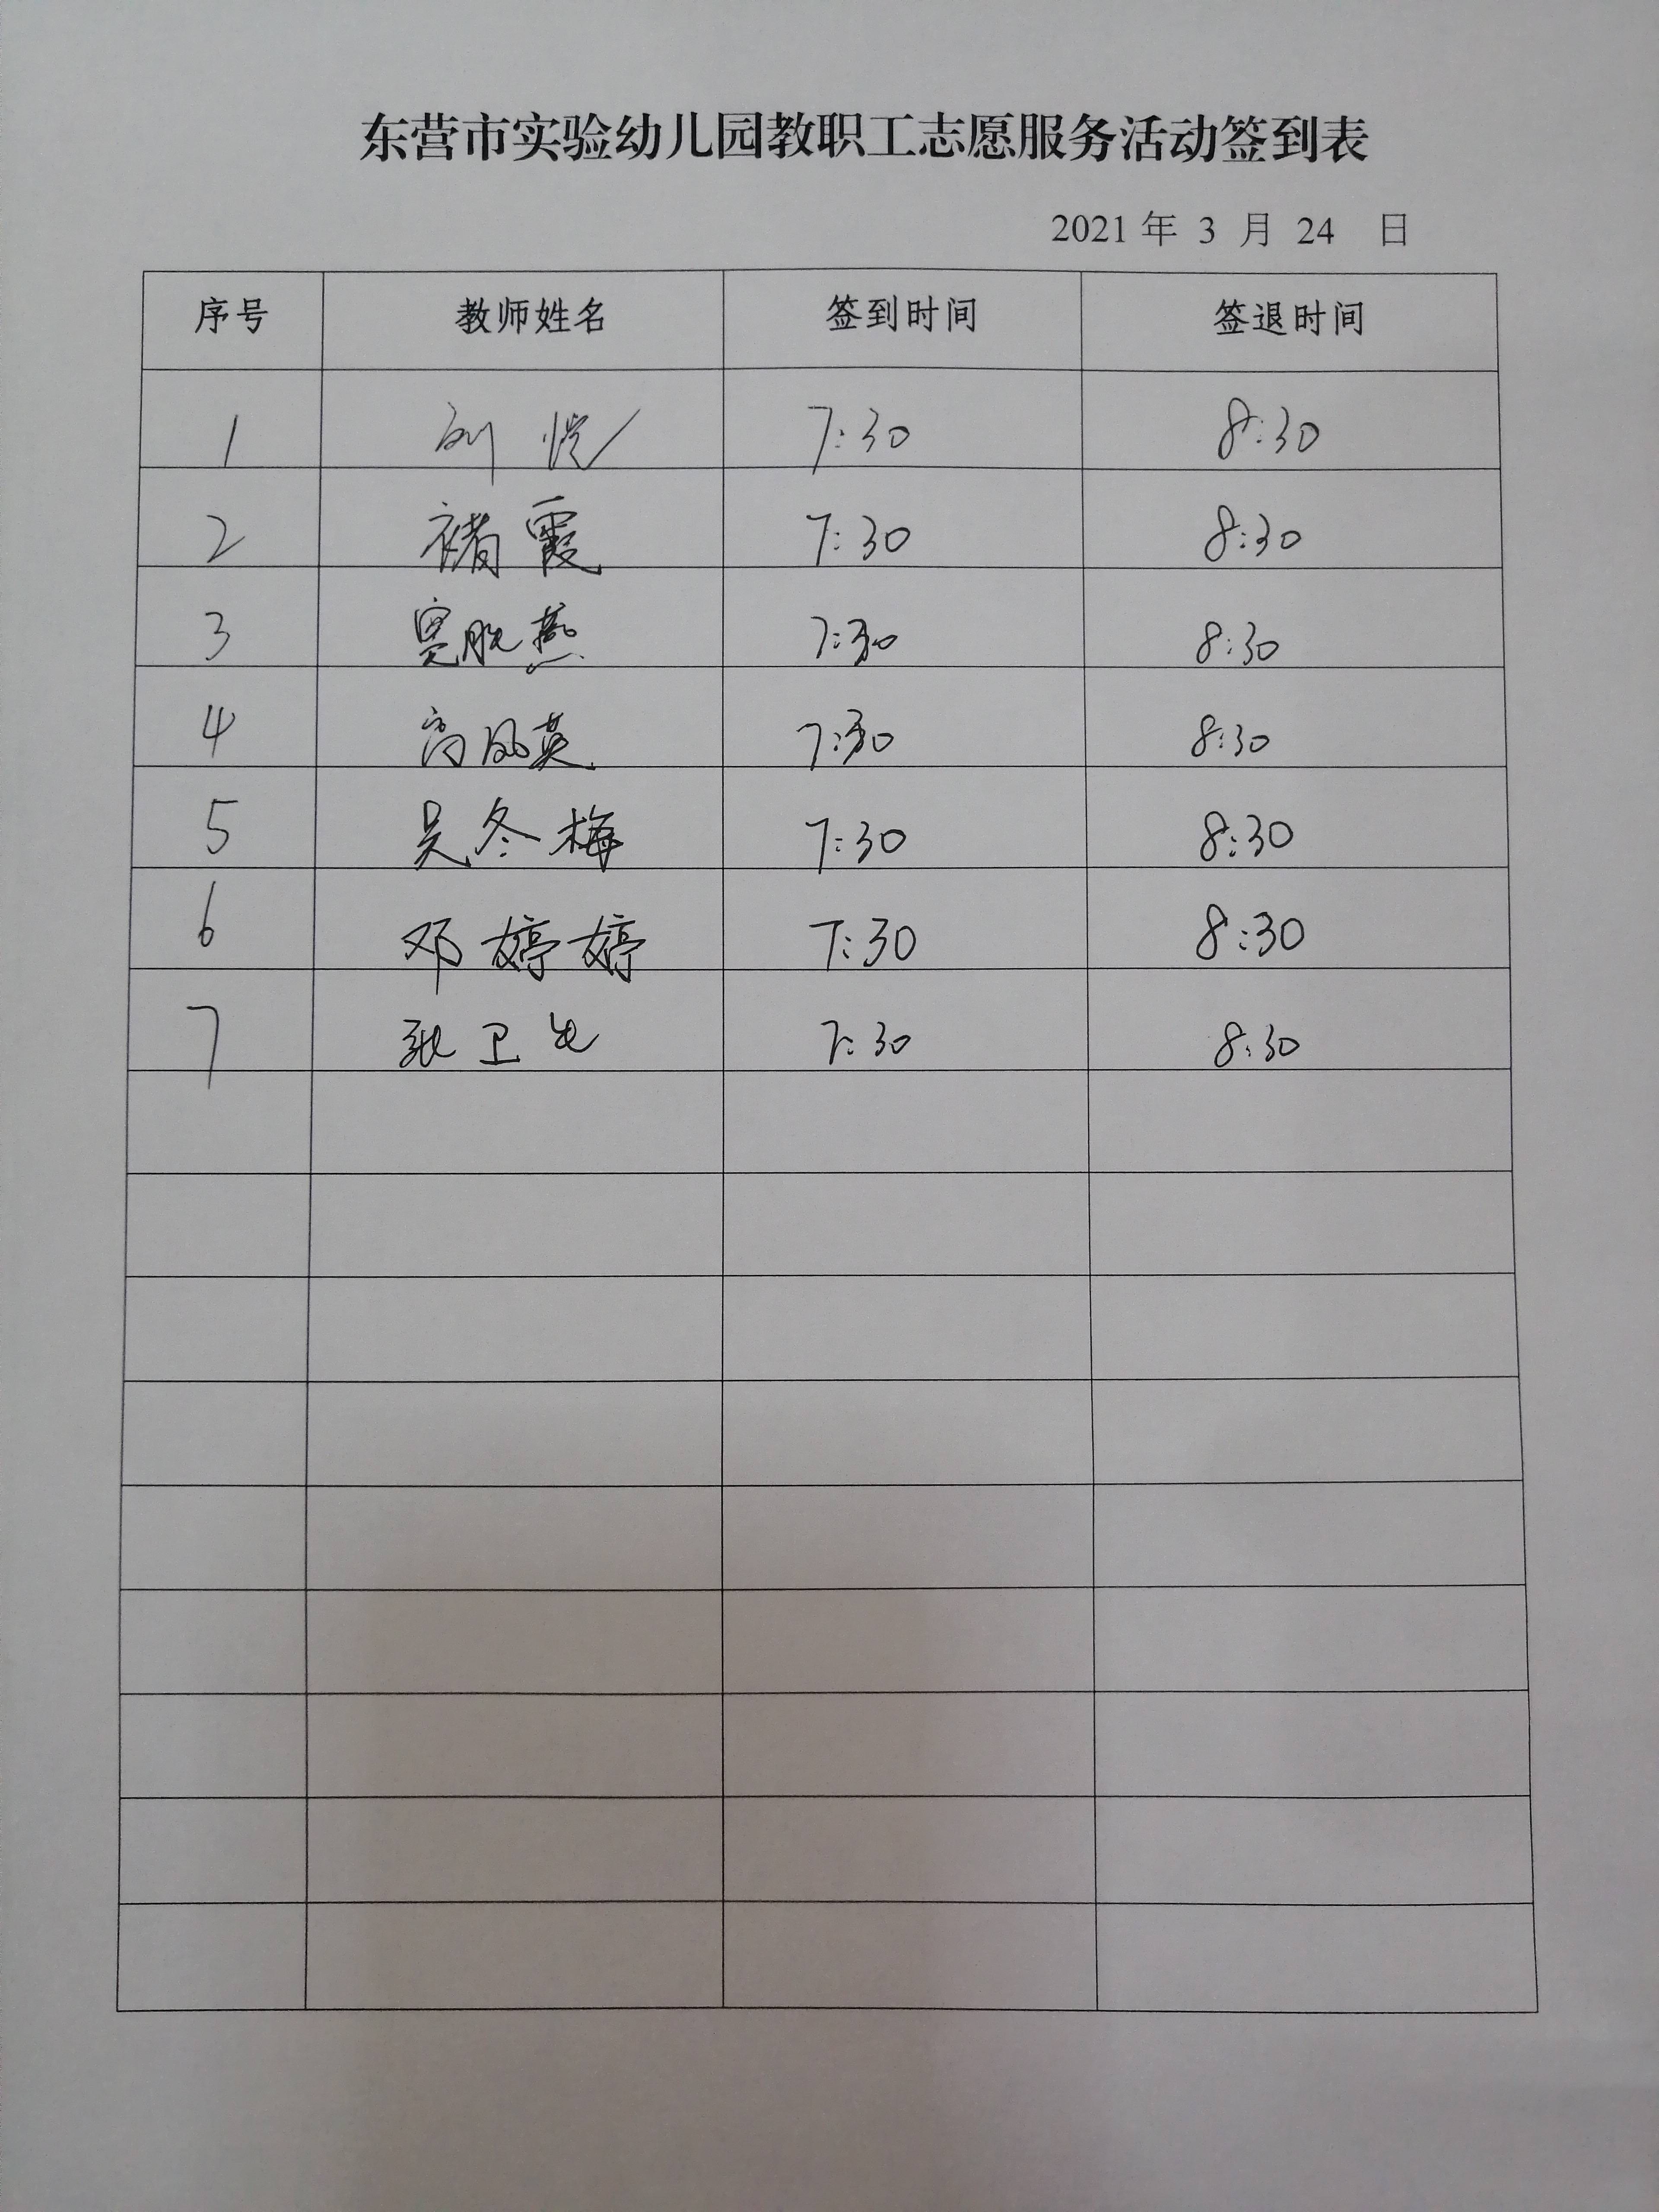 东营市实验幼儿园教职工志愿服务活动签到表
2021 年 3 月 24 日
序号 教师姓名 签到时间 签退时间
1 刘悦 7:30 8:30
2 褚霞 7:30 8:30
3 燕 7:30 8:30
4 高凤英 7:30 8:30
5 吴冬梅 7:30 8:30
6 邓婷婷 7:30 8:30
7 卫 7:30 8:30